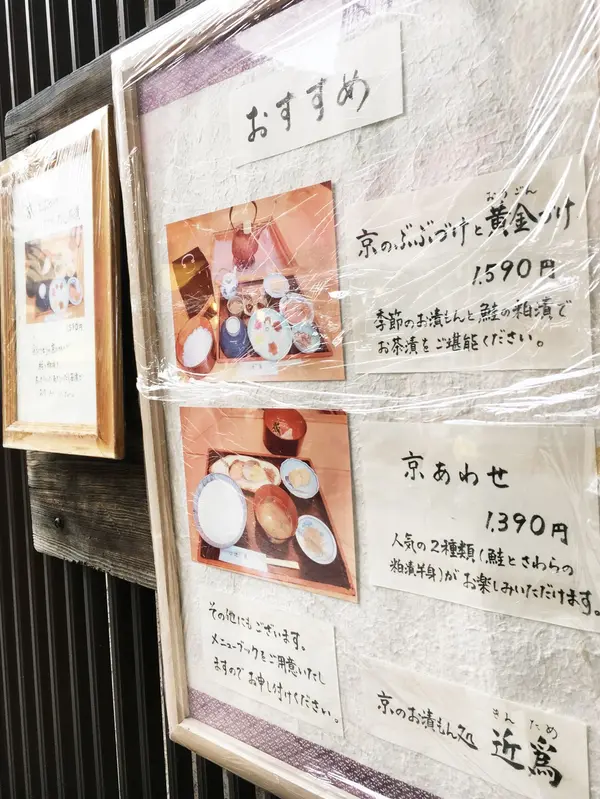 おすすめ
おうごん
京のぶぶづけと黄金づけ
1.590円
季節のお漬もんと鮭の粕漬で
お茶漬をご堪能ください。
京あわせ
1,390円
人気の2種類(鮭とさわらの
粕漬半身)がお楽しみいただけます。
その他にもございます。
メニューブックをご用意いたし
ますのでお申し付けください。
きんため
京のお漬もん処 近為